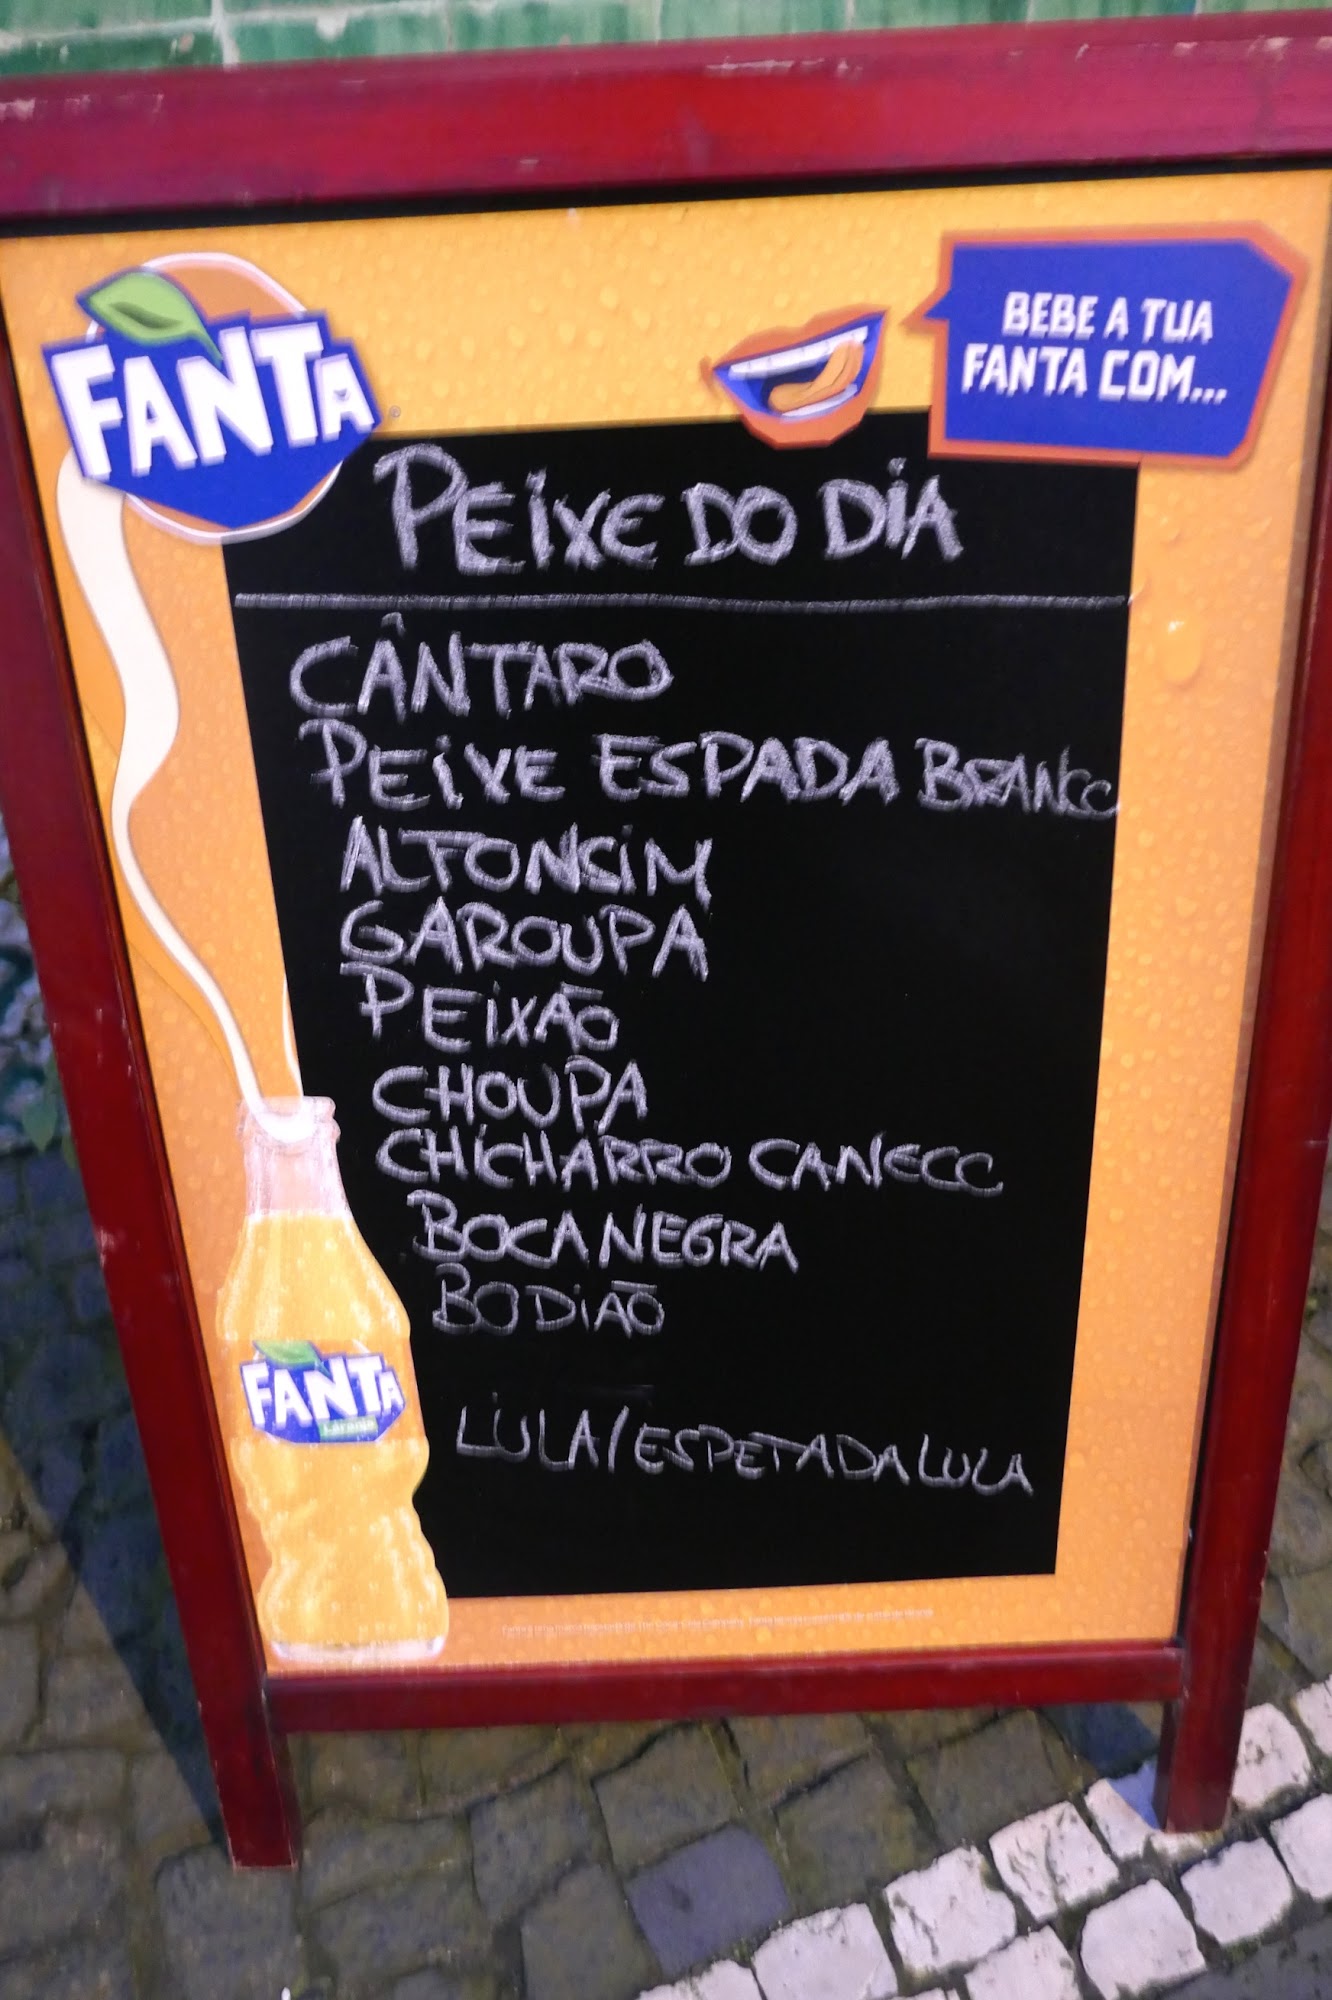 FANTA
BEBE A TUA
FANTA COM...
PEIXE DO DIA
CÂNTARO
PEIXE ESPADA BRANCO
ALFONSIM
GAROUPA
PEIXÃO
CHOUPA
CHICHARRO CANECO
BOCA NEGRA
BODIÃO
LULA/ESPETADA LULA
FANTA
Laranja